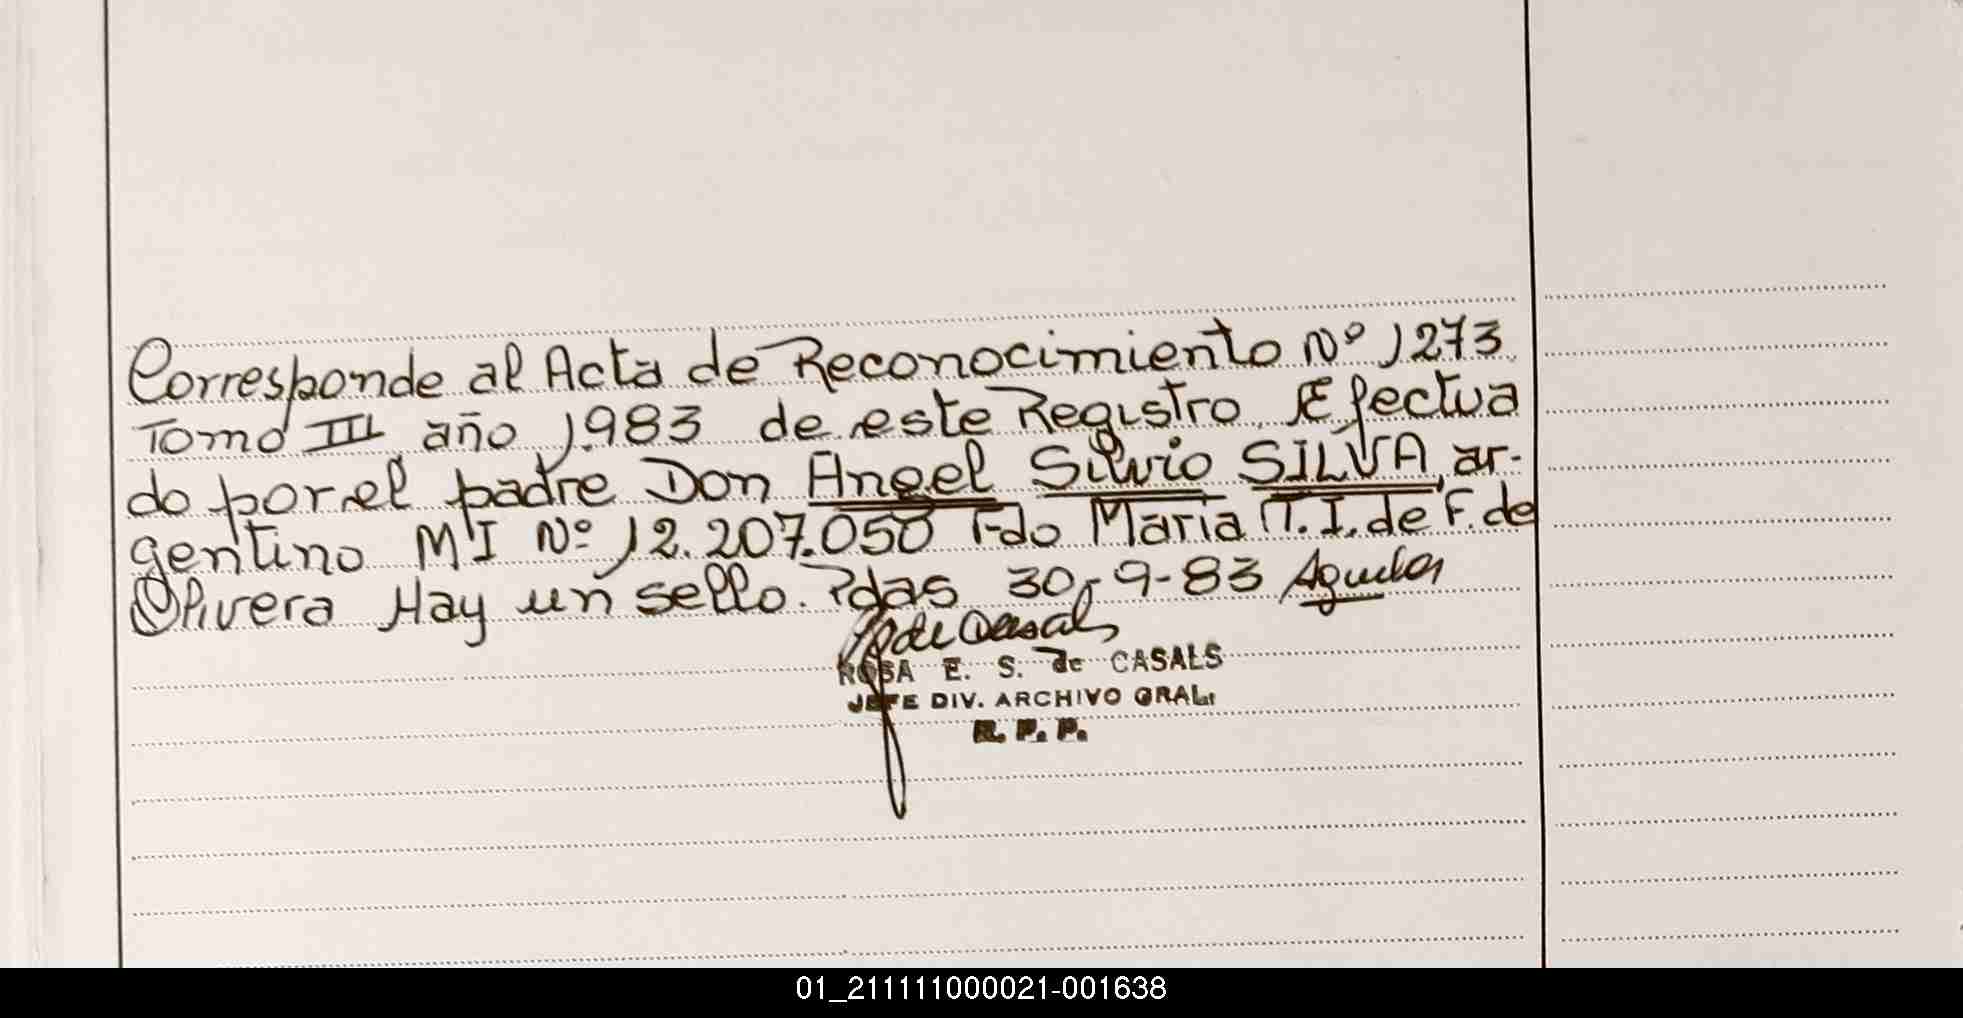 Corresponde al Acta de Reconocimiento Nº 1273
Tomo III año 1983 de este Registro, Efectua
do por el padre Don Angel Silvio SILVA, ar-
gentino MI Nº 12.207.050 Fdo Maria T. I. de F. de
Olivera Hay un sello. Pdas 30-9-83 Aguilar
de Casals
ROSA E. S. de CASALS
JEFE DIV. ARCHIVO GRAL.
R. P. P.
01_211111000021-001638